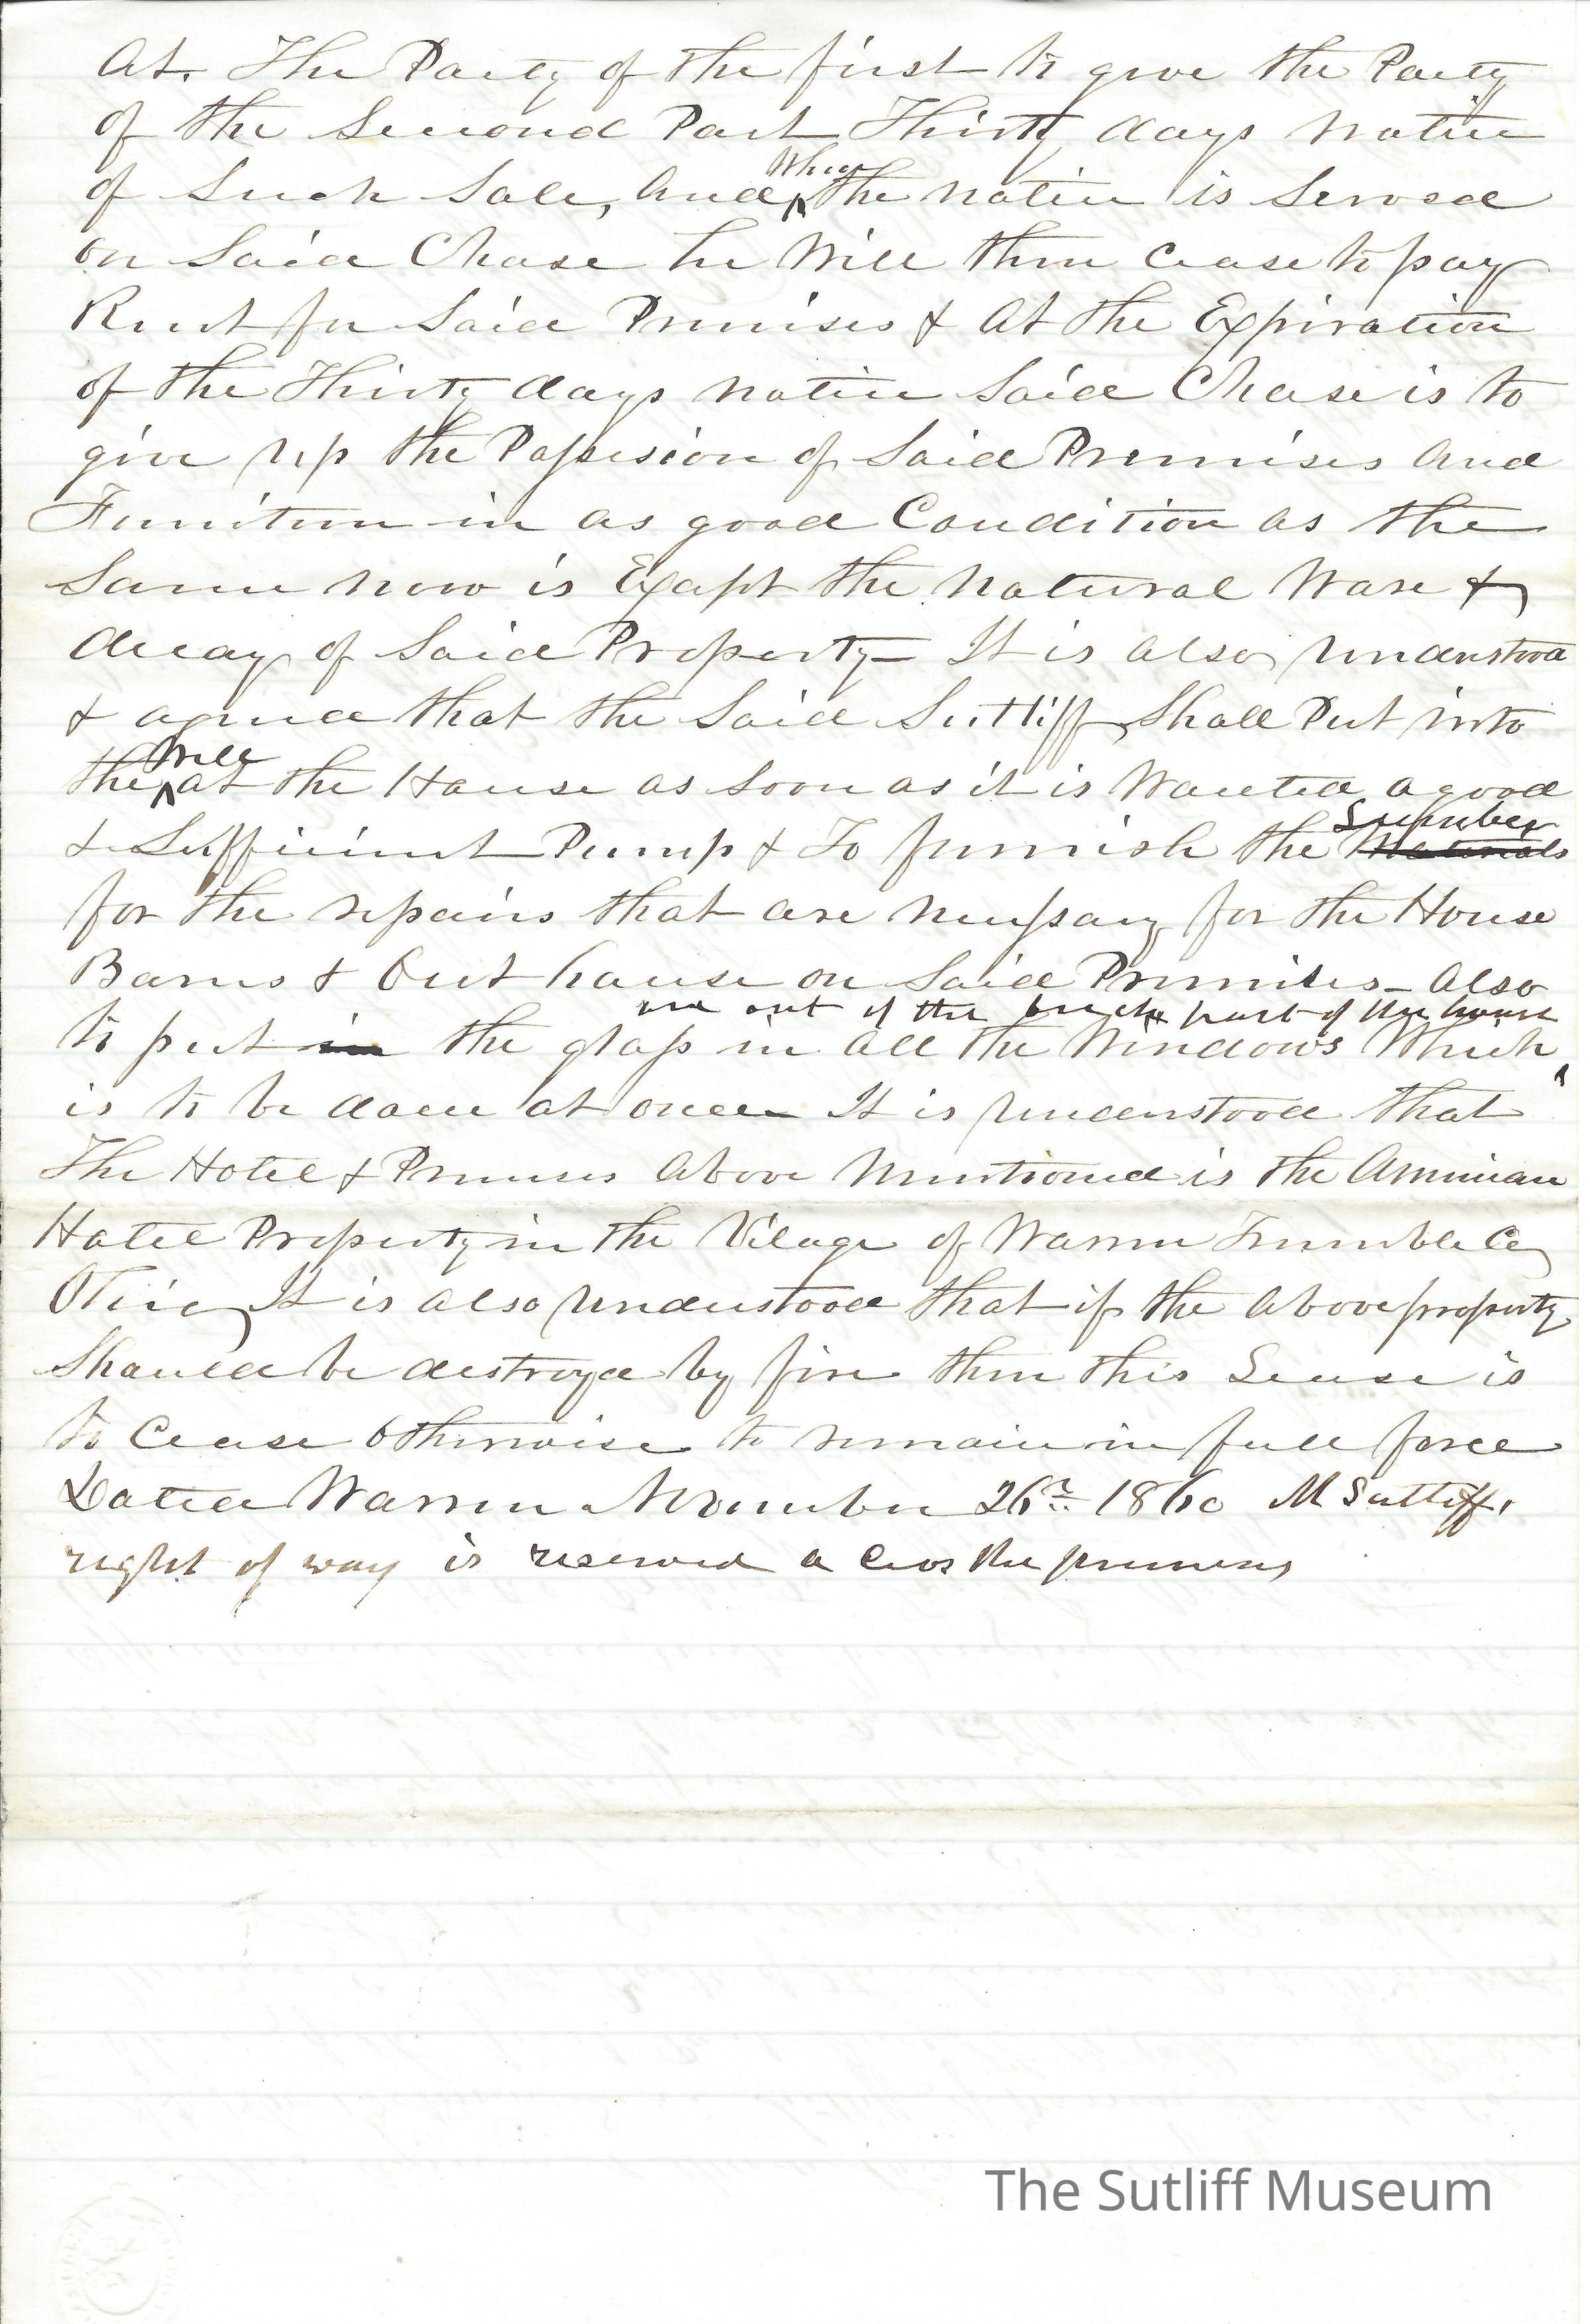 At. The Party of the first to give the Party
of the Second Part Thirty days Notice
of Such Sale, And When the Notice is Served
on Said Chase he Will then Cease to pay
Rent for Said Premises & At the Expiration
of the Thirty days notice Said Chase is to
give up the Possesion of Said Premises And
Furniture in as good Condition as the
Same now is Exsept the Natural Ware &
decay of Said Property It is also Understood
& agreed that the Said Sutliff Shall Put into
the Well at the House as Soon as it is Wanted a good
& Sufficient Pump & To furnish the Lumber Materials
for the repairs that are nessary for the House
Barns & Out house on Said Premises Also
out of the brick part of the house
to put in the glass in All the Windows Which
is to be done at once It is Understood that
The Hotel & Premises Above Mentioned is the American
Hotel Property in the Vilage of Warren Trumble Co
Ohio It is also Understood that if the Above property
Should be destroyed by fire then this Lease is
to Cease Otherwise to remain in full force
Dated Warren November 26th 1860 M Sutliff.
right of way is reserved a cros the premises
The Sutliff Museum